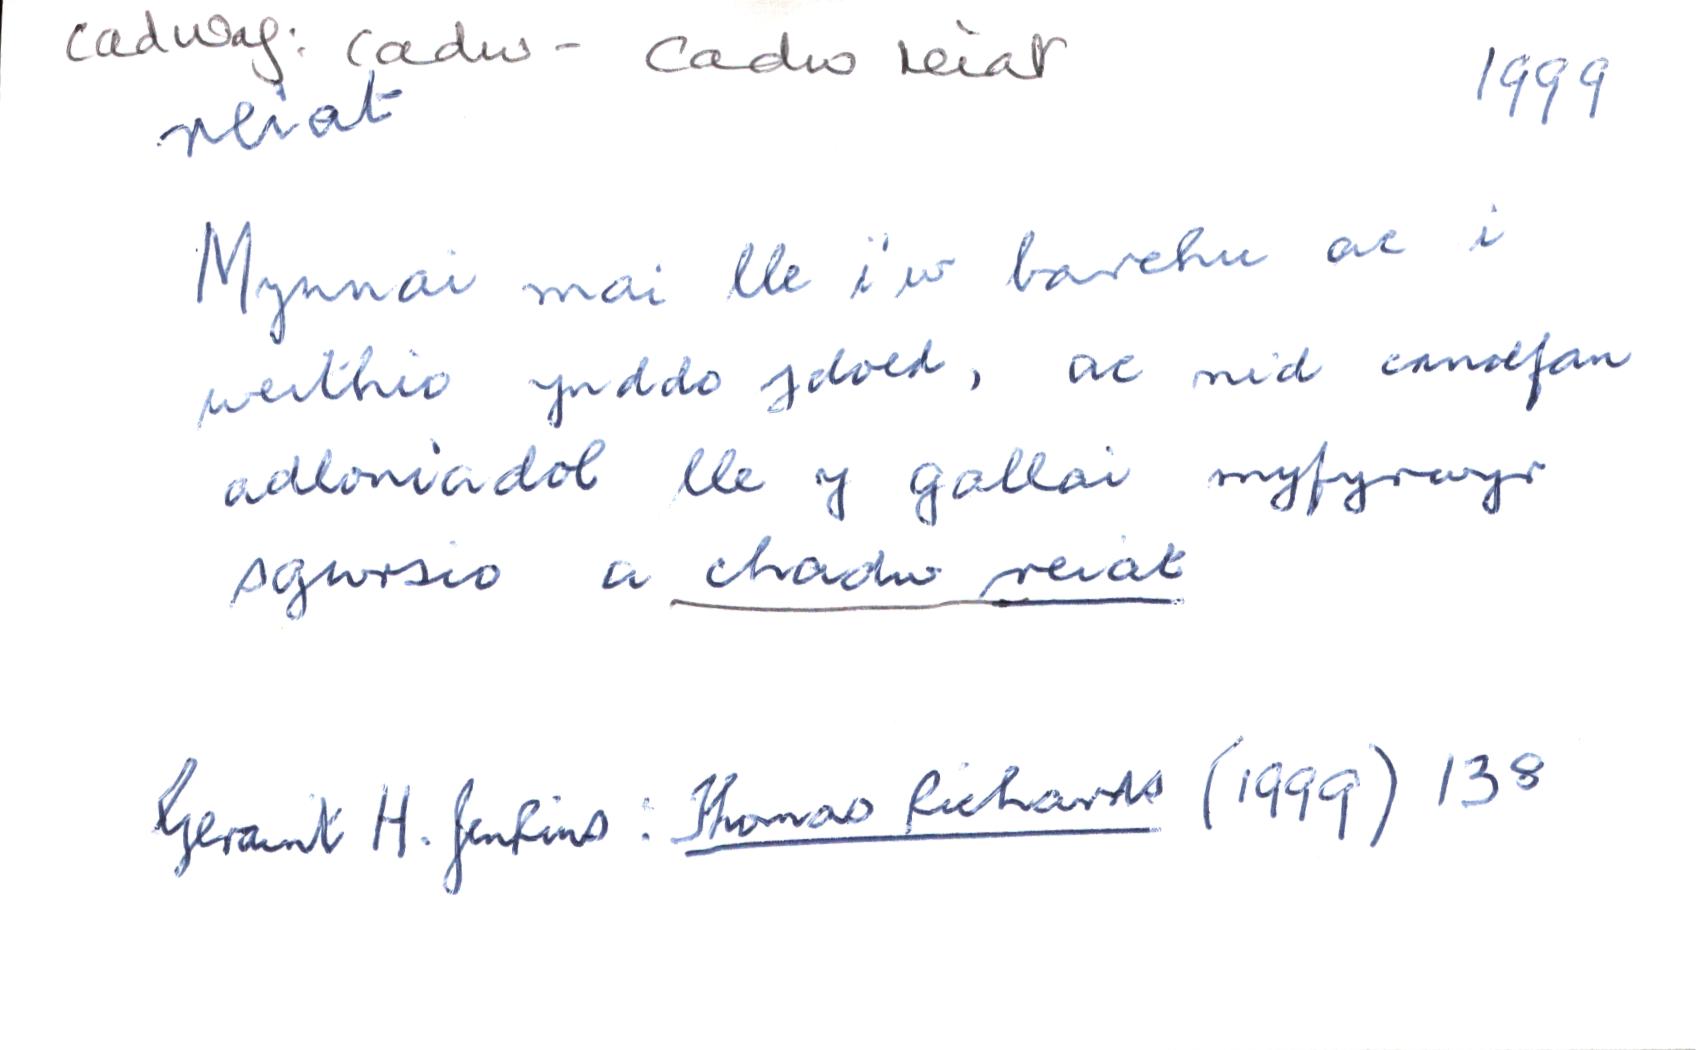 cadwaf: cadw - cadw reiat
reiat 1999
Mynnai mai lle i'w barchu ac i
weithio ynddo ydoedd, ac nid canolfan
adloniadol lle y gallai myfyrwyr
sgwrsio a chadw reiat
Geraint H. Jenkins: Thomas Richards (1999) 138